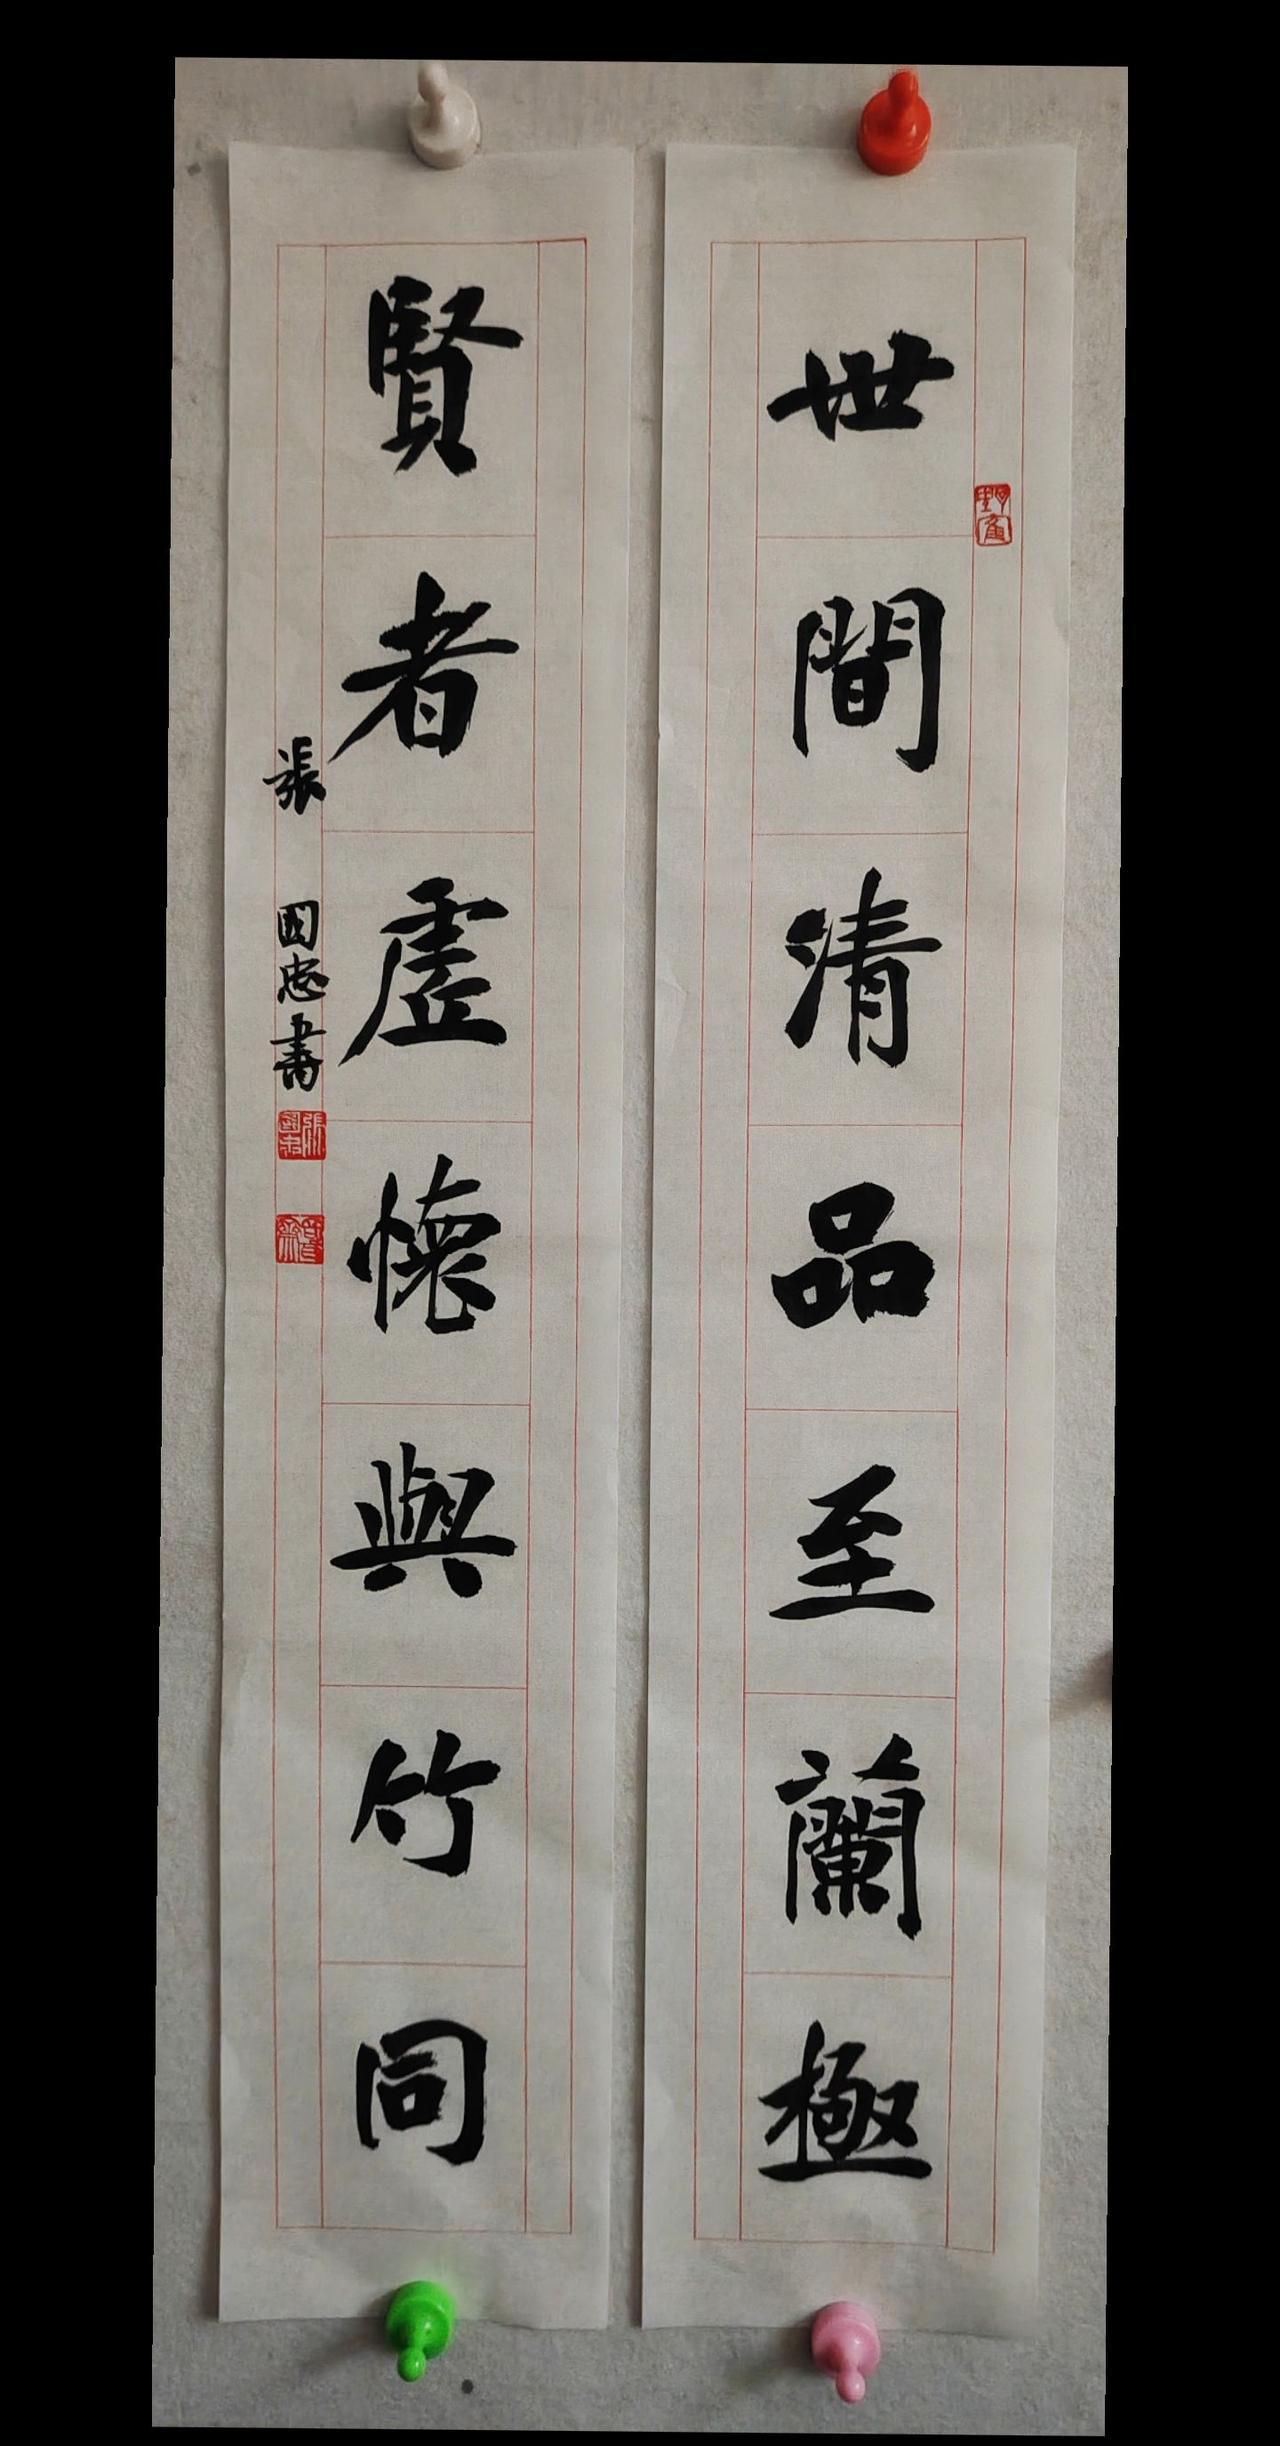 世間清品至蘭極
賢者虛懷與竹同
張國忠書
張國忠